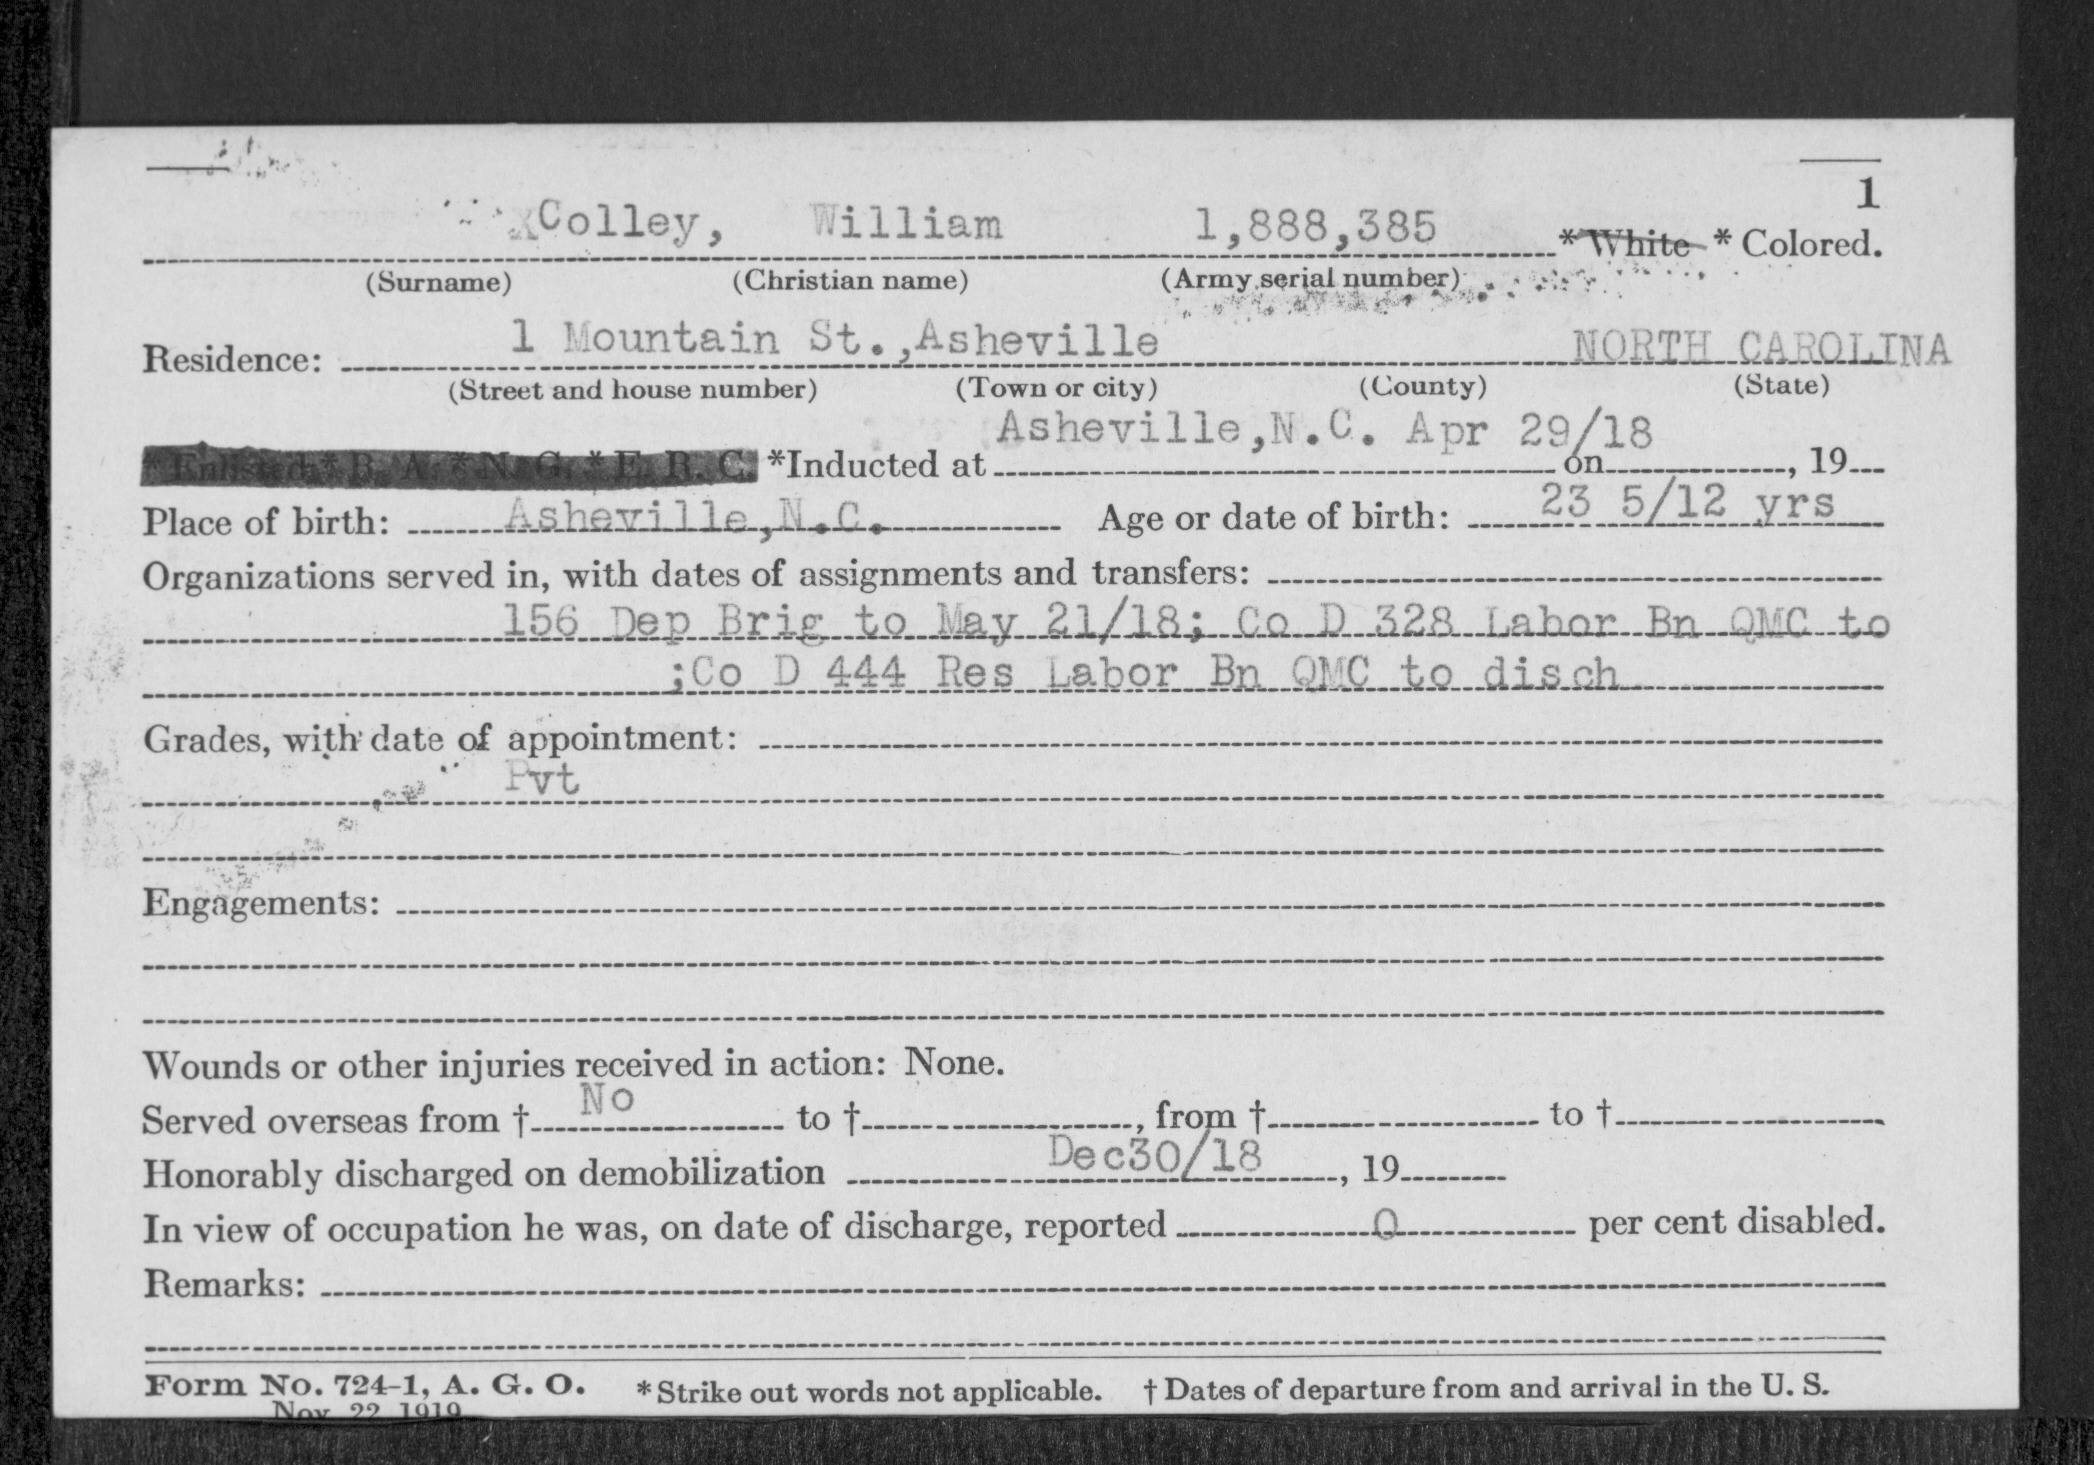 1
Colley, William 1,888,385 * White * Colored.
(Surname) (Christian name) (Army serial number)
Residence: 1 Mountain St., Asheville NORTH CAROLINA
(Street and house number) (Town or city) (County) (State)
* Enlisted * R. A. * N. G. * E. R. C. *Inducted at Asheville,N.C. Apr 29/18 on , 19
Place of birth: Asheville,N.C. Age or date of birth: 23 5/12 yrs
Organizations served in, with dates of assignments and transfers:
156 Dep Brig to May 21/18; Co D 328 Labor Bn QMC to
;Co D 444 Res Labor Bn QMC to disch
Grades, with date of appointment:
Pvt
Engagements:
Wounds or other injuries received in action: None.
Served overseas from † No to † , from † to †
Honorably discharged on demobilization Dec30/18 , 19
In view of occupation he was, on date of discharge, reported 0 per cent disabled.
Remarks:
Form No. 724-1, A. G. O. *Strike out words not applicable. † Dates of departure from and arrival in the U. S.
Nov. 22, 1919